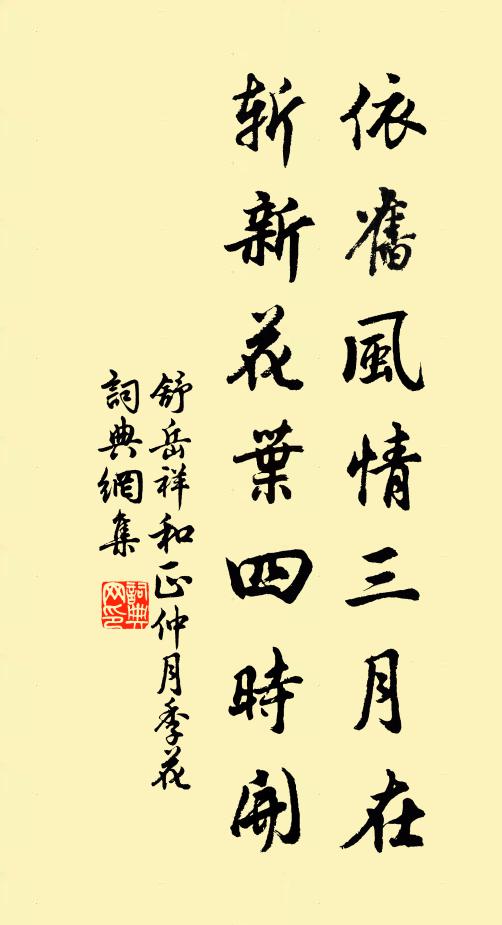 依舊風情三月在
斬新花葉四時開
舒岳祥和正仲月季花
詞典網集
詞典網印